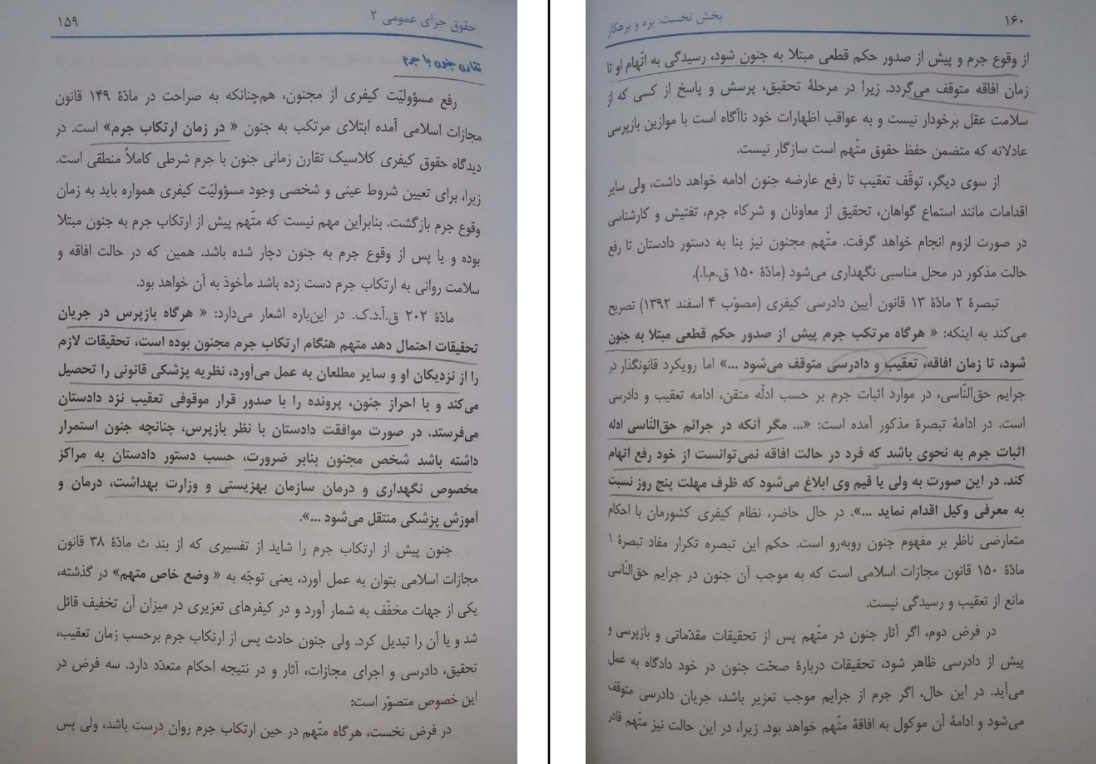 حقوق جزای عمومی ۲
۱۵۹
تقارن جنون با جرم
رفع مسؤولیّت کیفری از مجنون، هم‌چنانکه به صراحت در مادّهٔ ۱۴۹ قانون
مجازات اسلامی آمده ابتلای مرتکب به جنون « در زمان ارتکاب جرم» است. در
دیدگاه حقوق کیفری کلاسیک تقارن زمانی جنون با جرم شرطی کاملاً منطقی است.
زیرا، برای تعیین شروط عینی و شخصی وجود مسؤولیّت کیفری همواره باید به زمان
وقوع جرم بازگشت. بنابراین مهم نیست که متّهم پیش از ارتکاب جرم به جنون مبتلا
بوده و یا پس از وقوع جرم به جنون دچار شده باشد. همین که در حالت افاقه و
سلامت روانی به ارتکاب جرم دست زده باشد مأخوذ به آن خواهد بود.
مادّهٔ ۲۰۲ ق.آ.د.ک. در این‌باره اشعار می‌دارد: « هرگاه بازپرس در جریان
تحقیقات احتمال دهد متهم هنگام ارتکاب جرم مجنون بوده است، تحقیقات لازم
را از نزدیکان او و سایر مطلعان به عمل می‌آورد، نظریه پزشکی قانونی را تحصیل
می‌کند و با احراز جنون، پرونده را با صدور قرار موقوفی تعقیب نزد دادستان
می‌فرستد. در صورت موافقت دادستان با نظر بازپرس، چنانچه جنون استمرار
داشته باشد شخص مجنون بنابر ضرورت، حسب دستور دادستان به مراکز
مخصوص نگهداری و درمان سازمان بهزیستی و وزارت بهداشت، درمان و
آموزش پزشکی منتقل می‌شود ...».
جنون پیش از ارتکاب جرم را شاید از تفسیری که از بند ث مادّهٔ ۳۸ قانون
مجازات اسلامی بتوان به عمل آورد، یعنی توجّه به « وضع خاص متهم» در گذشته،
یکی از جهات مخفّف به شمار آورد و در کیفرهای تعزیری در میزان آن تخفیف قائل
شد و یا آن را تبدیل کرد. ولی جنون حادث پس از ارتکاب جرم برحسب زمان تعقیب،
تحقیق، دادرسی و اجرای مجازات، آثار و در نتیجه احکام متعدّد دارد. سه فرض در
این خصوص متصوّر است:
در فرض نخست، هرگاه متّهم در حین ارتکاب جرم روان درست باشد، ولی پس
بخش نخست: بزه و بزهکار
۱۶۰
از وقوع جرم و پیش از صدور حکم قطعی مبتلا به جنون شود، رسیدگی به اتّهام او تا
زمان افاقه متوقف می‌گردد. زیرا در مرحلهٔ تحقیق، پرسش و پاسخ از کسی که از
سلامت عقل برخودار نیست و به عواقب اظهارات خود ناآگاه است با موازین بازپرسی
عادلانه که متضمن حفظ حقوق متّهم است سازگار نیست.
از سوی دیگر، توقّف تعقیب تا رفع عارضه جنون ادامه خواهد داشت، ولی سایر
اقدامات مانند استماع گواهان، تحقیق از معاونان و شرکاء جرم، تفتیش و کارشناسی
در صورت لزوم انجام خواهد گرفت. متّهم مجنون نیز بنا به دستور دادستان تا رفع
حالت مذکور در محل مناسبی نگهداری می‌شود (مادّهٔ ۱۵۰ ق.م.ا.).
تبصرهٔ ۲ مادّهٔ ۱۳ قانون آیین دادرسی کیفری (مصوّب ۴ اسفند ۱۳۹۲) تصریح
می‌کند به اینکه: « هرگاه مرتکب جرم پیش از صدور حکم قطعی مبتلا به جنون
شود، تا زمان افاقه، تعقیب و دادرسی متوقف می‌شود ...» اما رویکرد قانونگذار در
جرایم حق‌النّاسی، در موارد اثبات جرم بر حسب ادلّه متقن، ادامه تعقیب و دادرسی
است. در ادامهٔ تبصرهٔ مذکور آمده است: «... مگر آنکه در جرائم حق‌النّاسی ادله
اثبات جرم به نحوی باشد که فرد در حالت افاقه نمی‌توانست از خود رفع اتهام
کند. در این صورت به ولی یا قیم وی ابلاغ می‌شود که ظرف مهلت پنج روز نسبت
به معرفی وکیل اقدام نماید ...». در حال حاضر، نظام کیفری کشورمان با احکام
متعارضی ناظر بر مفهوم جنون روبه‌رو است. حکم این تبصره تکرار مفاد تبصرهٔ ۱
مادّهٔ ۱۵۰ قانون مجازات اسلامی است که به موجب آن جنون در جرایم حق‌النّاسی
مانع از تعقیب و رسیدگی نیست.
در فرض دوم، اگر آثار جنون در متّهم پس از تحقیقات مقدّماتی و بازپرسی و
پیش از دادرسی ظاهر شود، تحقیقات دربارهٔ صحّت جنون در خود دادگاه به عمل
می‌آید. در این حال، اگر جرم از جرایم موجب تعزیر باشد، جریان دادرسی متوقف
می‌شود و ادامهٔ آن موکول به افاقهٔ متّهم خواهد بود. زیرا، در این حالت نیز متّهم قادر